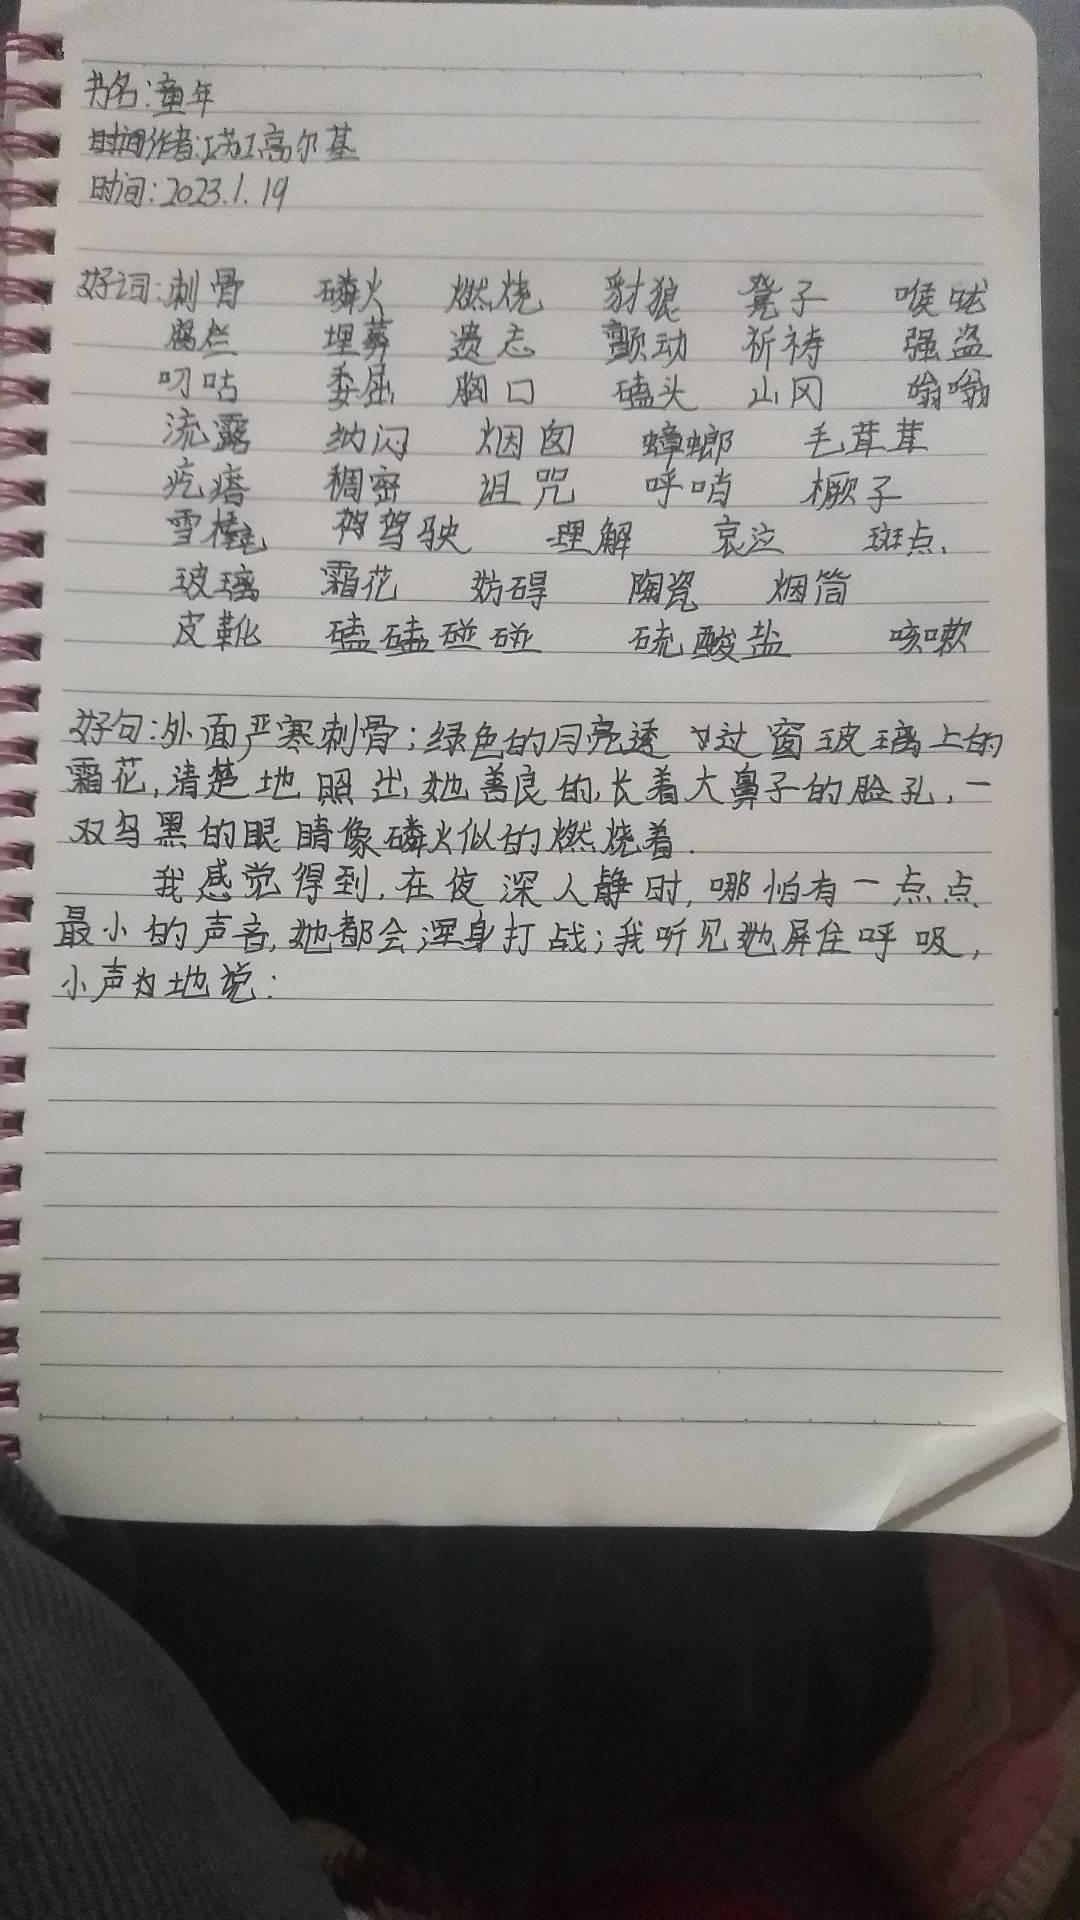 书名:童年
时间作者:[苏]高尔基
时间:2023.1.19
好词:刺骨 磷火 燃烧 豺狼 凳子 喉咙
腐烂 埋葬 遗志 颤动 祈祷 强盗
叨咕 委屈 胸口 磕头 山冈 嗡嗡
流露 纳闪 烟囱 蟑螂 毛茸茸
疙瘩 稠密 诅咒 呼哨 橛子
雪橇 驾驶 理解 哀泣 斑点.
玻璃 霜花 妨碍 陶瓷 烟筒
皮靴 磕磕碰碰 硫酸盐 咳嗽
好句:外面严寒刺骨;绿色的月亮透过窗玻璃上的
霜花,清楚地照出她善良的,长着大鼻子的脸孔,一
双乌黑的眼睛像磷火似的燃烧着.
我感觉得到,在夜深人静时,哪怕有一点点
最小的声音,她都会浑身打战;我听见她屏住呼吸,
小声地说: